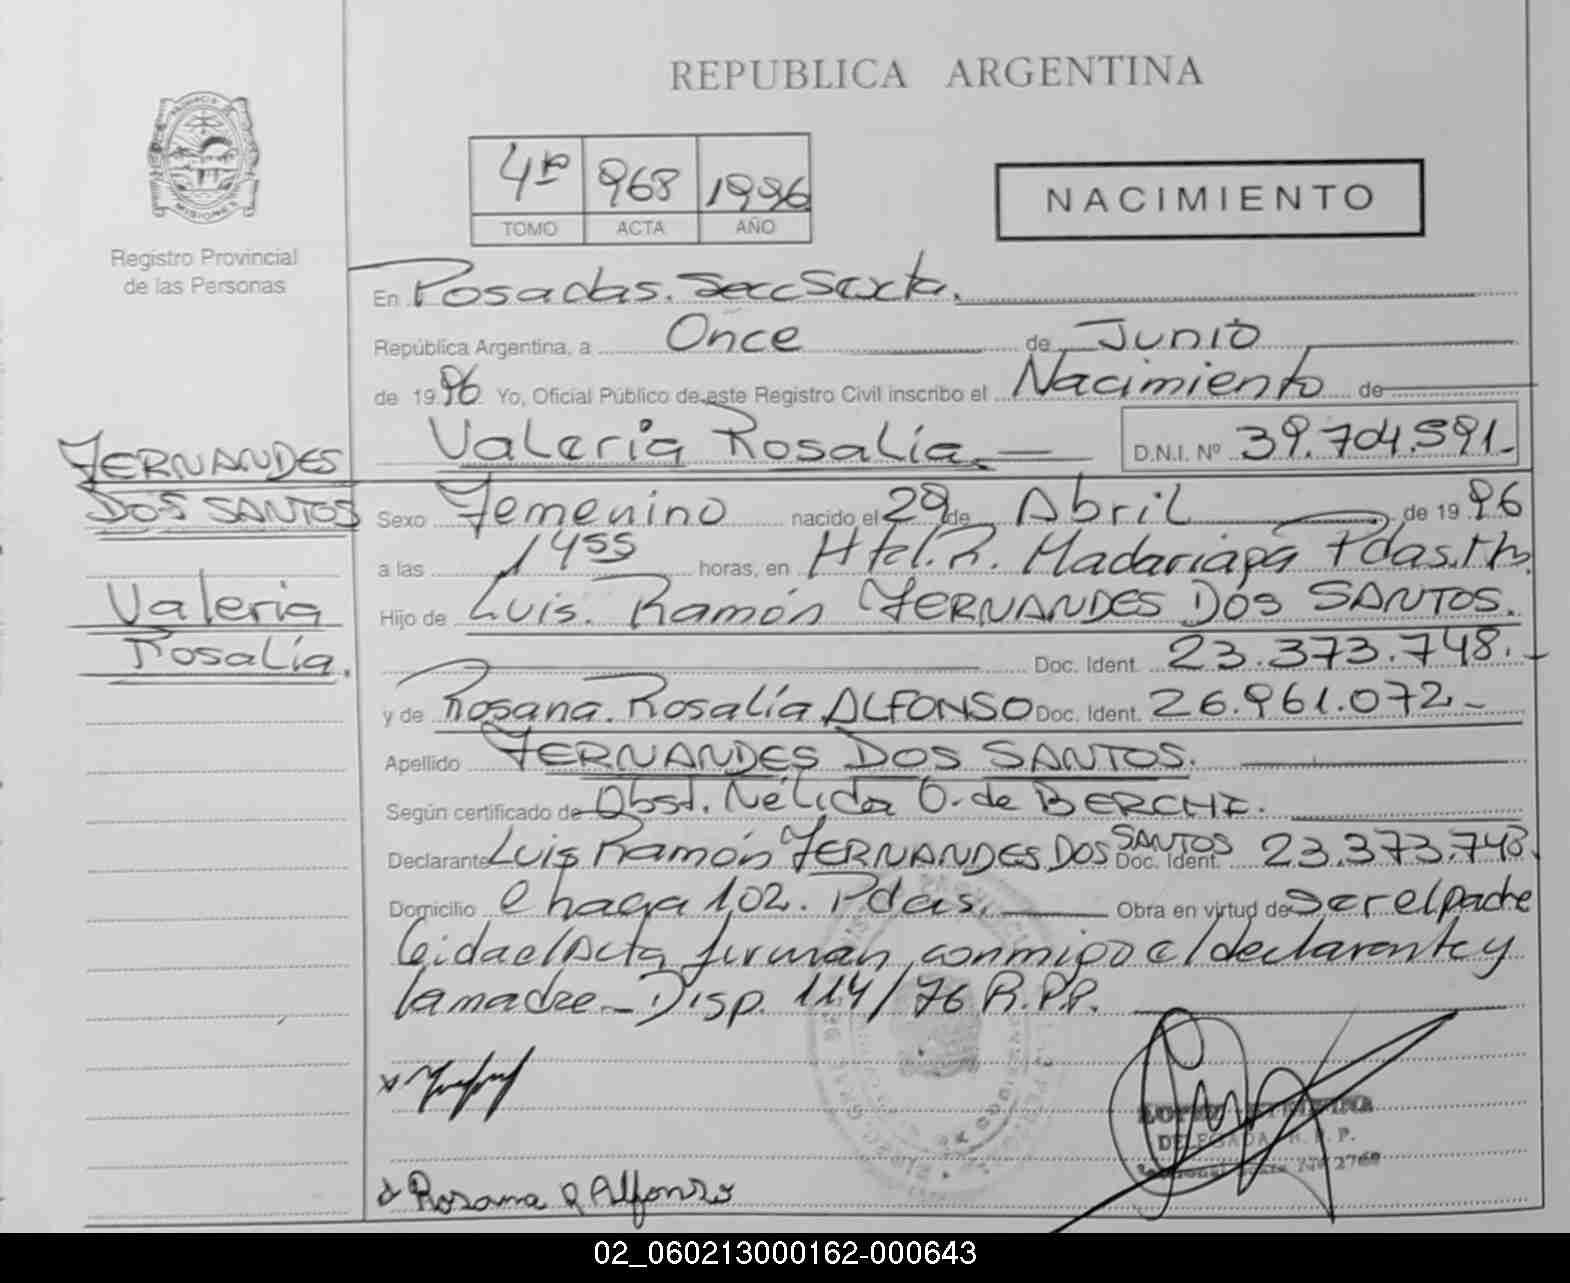 REPUBLICA ARGENTINA
PROVINCIA DE
MISIONES
Registro Provincial
de las Personas
4to 968 1996
TOMO ACTA AÑO
NACIMIENTO
En Posadas. Secc Sexta.
República Argentina, a Once de Junio
de 1996 Yo, Oficial Público de este Registro Civil inscribo el Nacimiento de
Valeria Rosalía. D.N.I. Nº 39.704.591.-
FERNANDES
DOS SANTOS
Valeria
Rosalía.
Sexo Femenino nacido el 29 de Abril de 1996
a las 1455 horas, en Htal. R. Madariaga Pdas. Mns.
Hijo de Luis. Ramón FERNANDES DOS SANTOS.
Doc. Ident. 23.373.748.-
y de Rosana. Rosalía ALFONSO Doc. Ident. 26.961.072.-
Apellido FERNANDES DOS SANTOS.
Según certificado de Obst. Nélida O. de BERCHI.
Declarante Luis Ramón FERNANDES DOS SANTOS Doc. Ident. 23.373.748.
Domicilio Chaga 102. Pdas. Obra en virtud de ser el padre
Leida el Acta firman conmigo el declarante y
la madre. Disp. 114/76 R.P.P.
Rosana R Alfonso
DELEGADA R. P. P.
Nº 2768
02_060213000162-000643